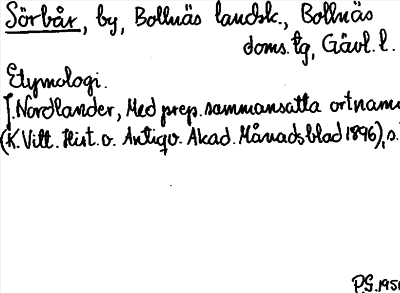 Sörbår, by, Bollnäs landsk., Bollnäs
doms.tg, Gävl.l.
Etymologi.
J. Nordlander, Med prep. sammansatta ortnamn
(K. Vitt. Hist. o. Antiqv. Akad. Månadsblad 1896), s.
P.G. 1950